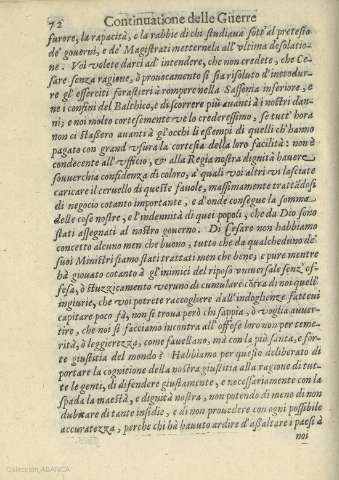 72 Continuatione delle Guerre
furore, la rapacità, e la rabbie di chi studiaua sott'al pretesto
de' gouerni, e de' Magistrati metternela all'vltima desolatio-
ne. Voi volete darci ad'intendere, che non credete, che Ce-
sare senza ragione, ò prouocamento si sia risoluto d'introdur-
re gl'esserciti forastieri à rompere nella Sassonia inferiore, e
ne i confini del Balthico, è di scorrere più auanti à i nostri dan-
ni; e noi molto cortesemente ve lo crederessimo, se tutt'hora
non ci stassero auanti à gl'occhi li essempi di quelli ch'hanno
pagato con grand'vsura la cortesia della loro facilità: non è
condecente all'vfficio, e alla Regia nostra dignità hauere
souuerchia confidenza di coloro, a' quali voi altri vi lasciate
caricare il ceruello di queste fauole, massimamente trattãdosi
di negocio cotanto importante, e d'onde consegue la somma
delle cose nostre, e l'indennità di quei popoli, che da Dio sono
stati assegnati al nostro gouerno. Di Cesare non habbiamo
concetto alcuno men che buono, tutto che da qualcheduno de'
suoi Ministri siamo stati trattati men che bene; e pure mentre
hà giouato cotanto à gl'inimici del riposo vniuersale senz'of-
fesa, ò stuzzicamento veruno di cumulare cõtra di noi quell'
ingiurie, che voi potrete raccogliere dall'indoglienze fatteui
capitare poco fà, non si troua però chi sappia, ò voglia auuer-
tire, che noi si facciamo incontra all'offese loro non per teme-
rità, ò leggierezza, come fauellano, mà con la più santa, e for-
te giustitia del mondo? Habbiamo per questo deliberato di
portare la cognitione della nostra giustitia alla ragione di tut-
te le genti, di difendere giustamente, e necessariamente con la
spada la maestà, e dignità nostra, non potendo di meno di non
dubitare di tante insidie, e di non prouedere con ogni possibile
accuratezza, perche chi hà hauuto ardire d'assaltare i paesi à
noi
Colección ABANCA